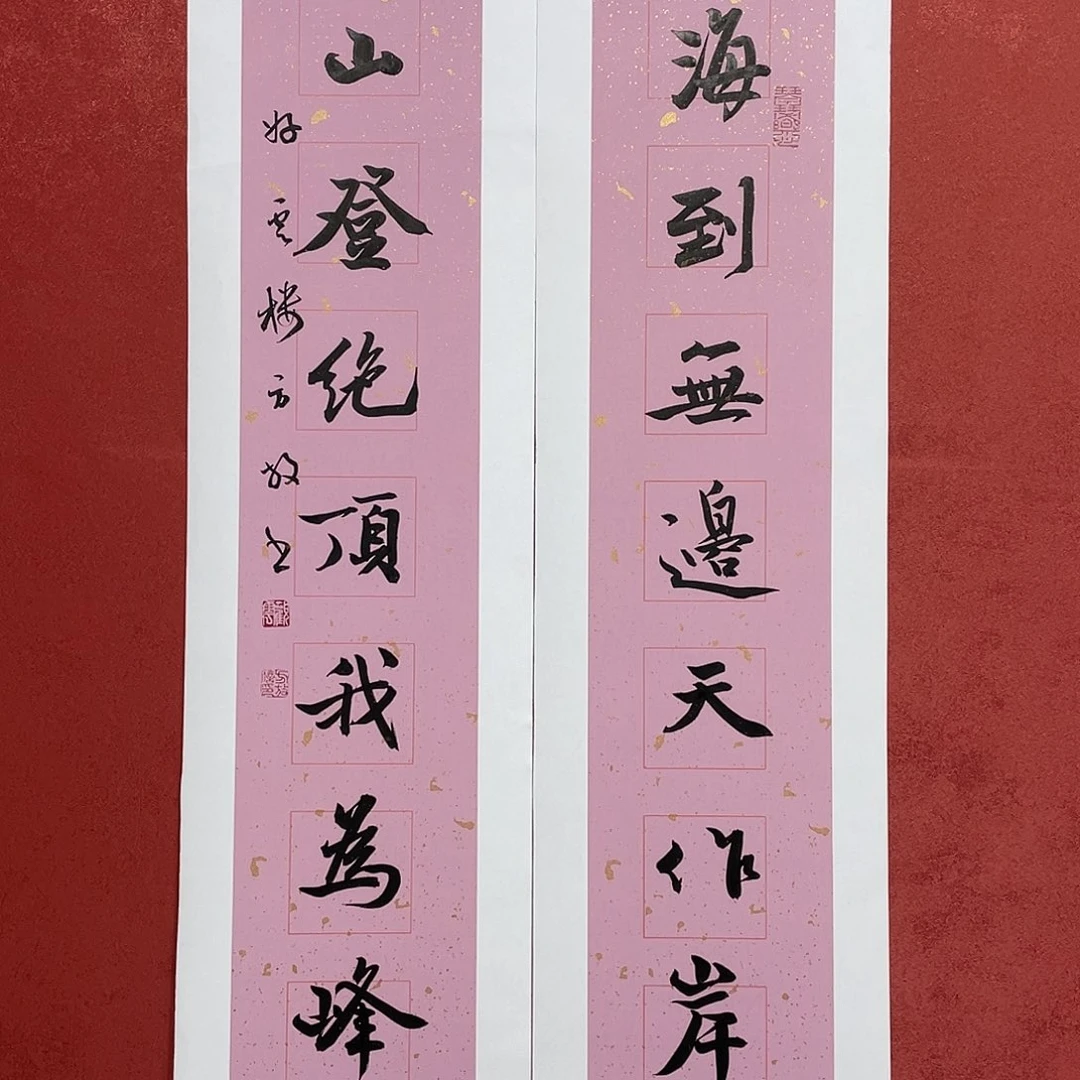 海到無邊天作岸
山登绝頂我為峰
好雲楼方放书